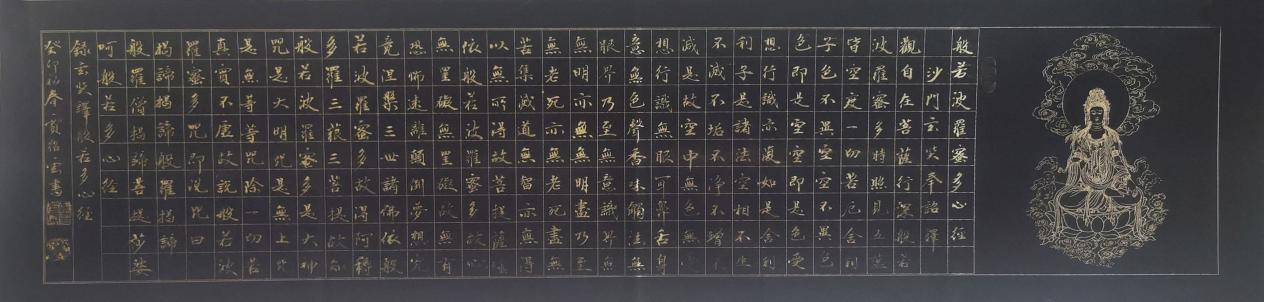 般若波羅蜜多心經
沙門玄奘奉詔譯
觀自在菩薩行深般若
波羅蜜多時照見五蘊
皆空度一切苦厄舍利
子色不異空空不異色
色即是空空即是色受
想行識亦復如是舍利
利子是諸法空相不生
不滅不垢不淨不增不
減是故空中無色無受
想行識無眼耳鼻舌身
意無色聲香味觸法無
眼界乃至無意識界無
無明亦無無明盡乃至
無老死亦無老死盡無
苦集滅道無智亦無得
以無所得故菩提薩埵
依般若波羅蜜多故心
無罣礙無罣礙故無有
恐怖遠離顛倒夢想究
竟涅槃三世諸佛依般
若波羅蜜多故得阿耨
多羅三藐三菩提故知
般若波羅蜜多是大神
咒是大明咒是無上咒
是無等等咒除一切苦
真實不虛故說般若波
羅蜜多咒即說咒曰
揭諦揭諦般羅揭諦
般羅僧揭諦菩提莎婆
呵般若多心經
錄玄奘譯般若多心經
癸卯初春賀